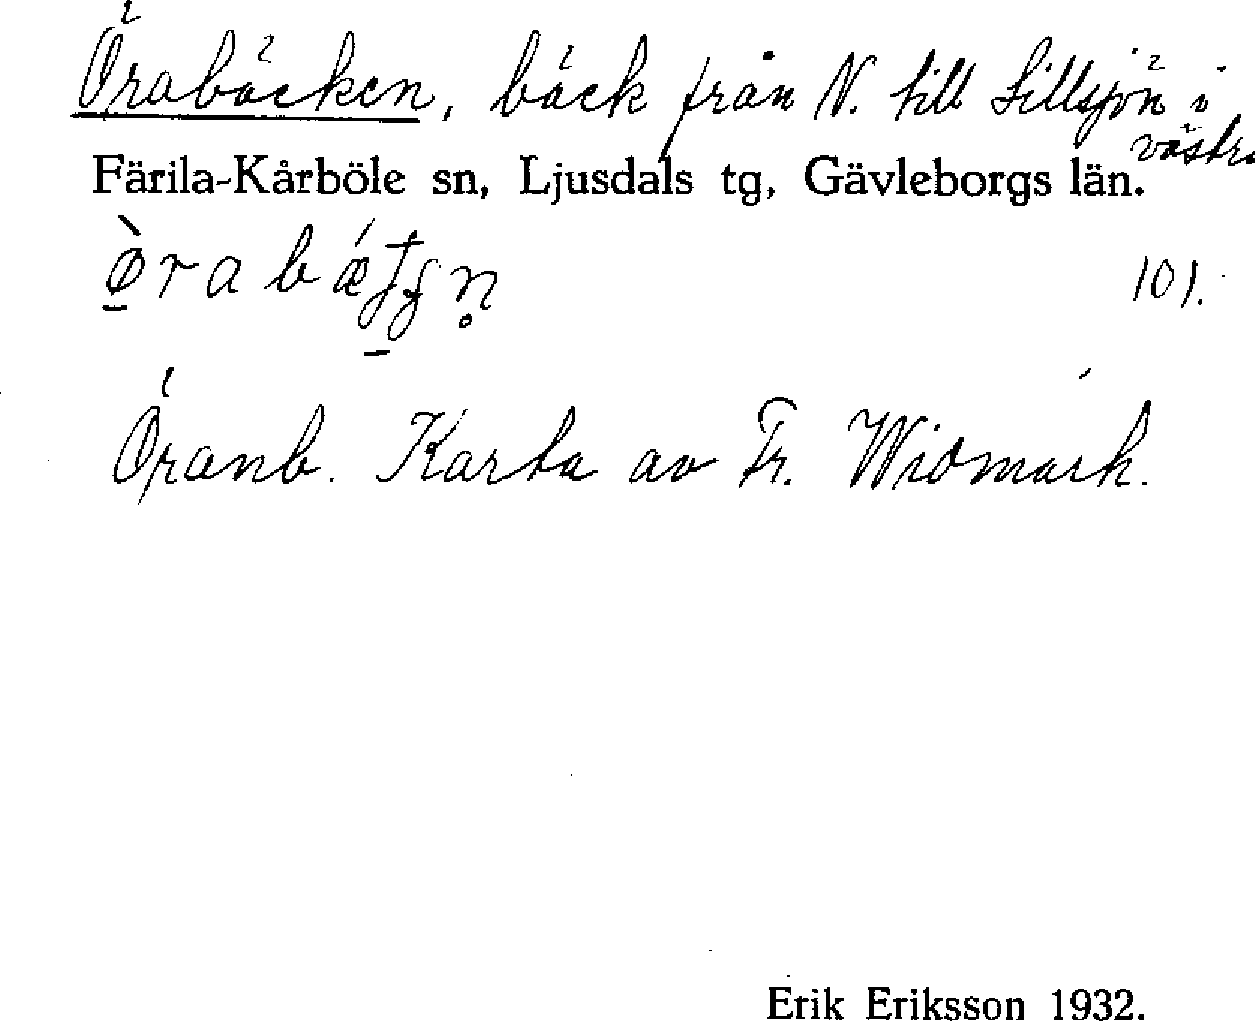 Örabäcken, bäck från N. till Lillsjön i västra
Färila-Kårböle sn, Ljusdals tg, Gävleborgs län.
101.
Öranb. Karta av Fr. Widmark.
Erik Eriksson 1932.